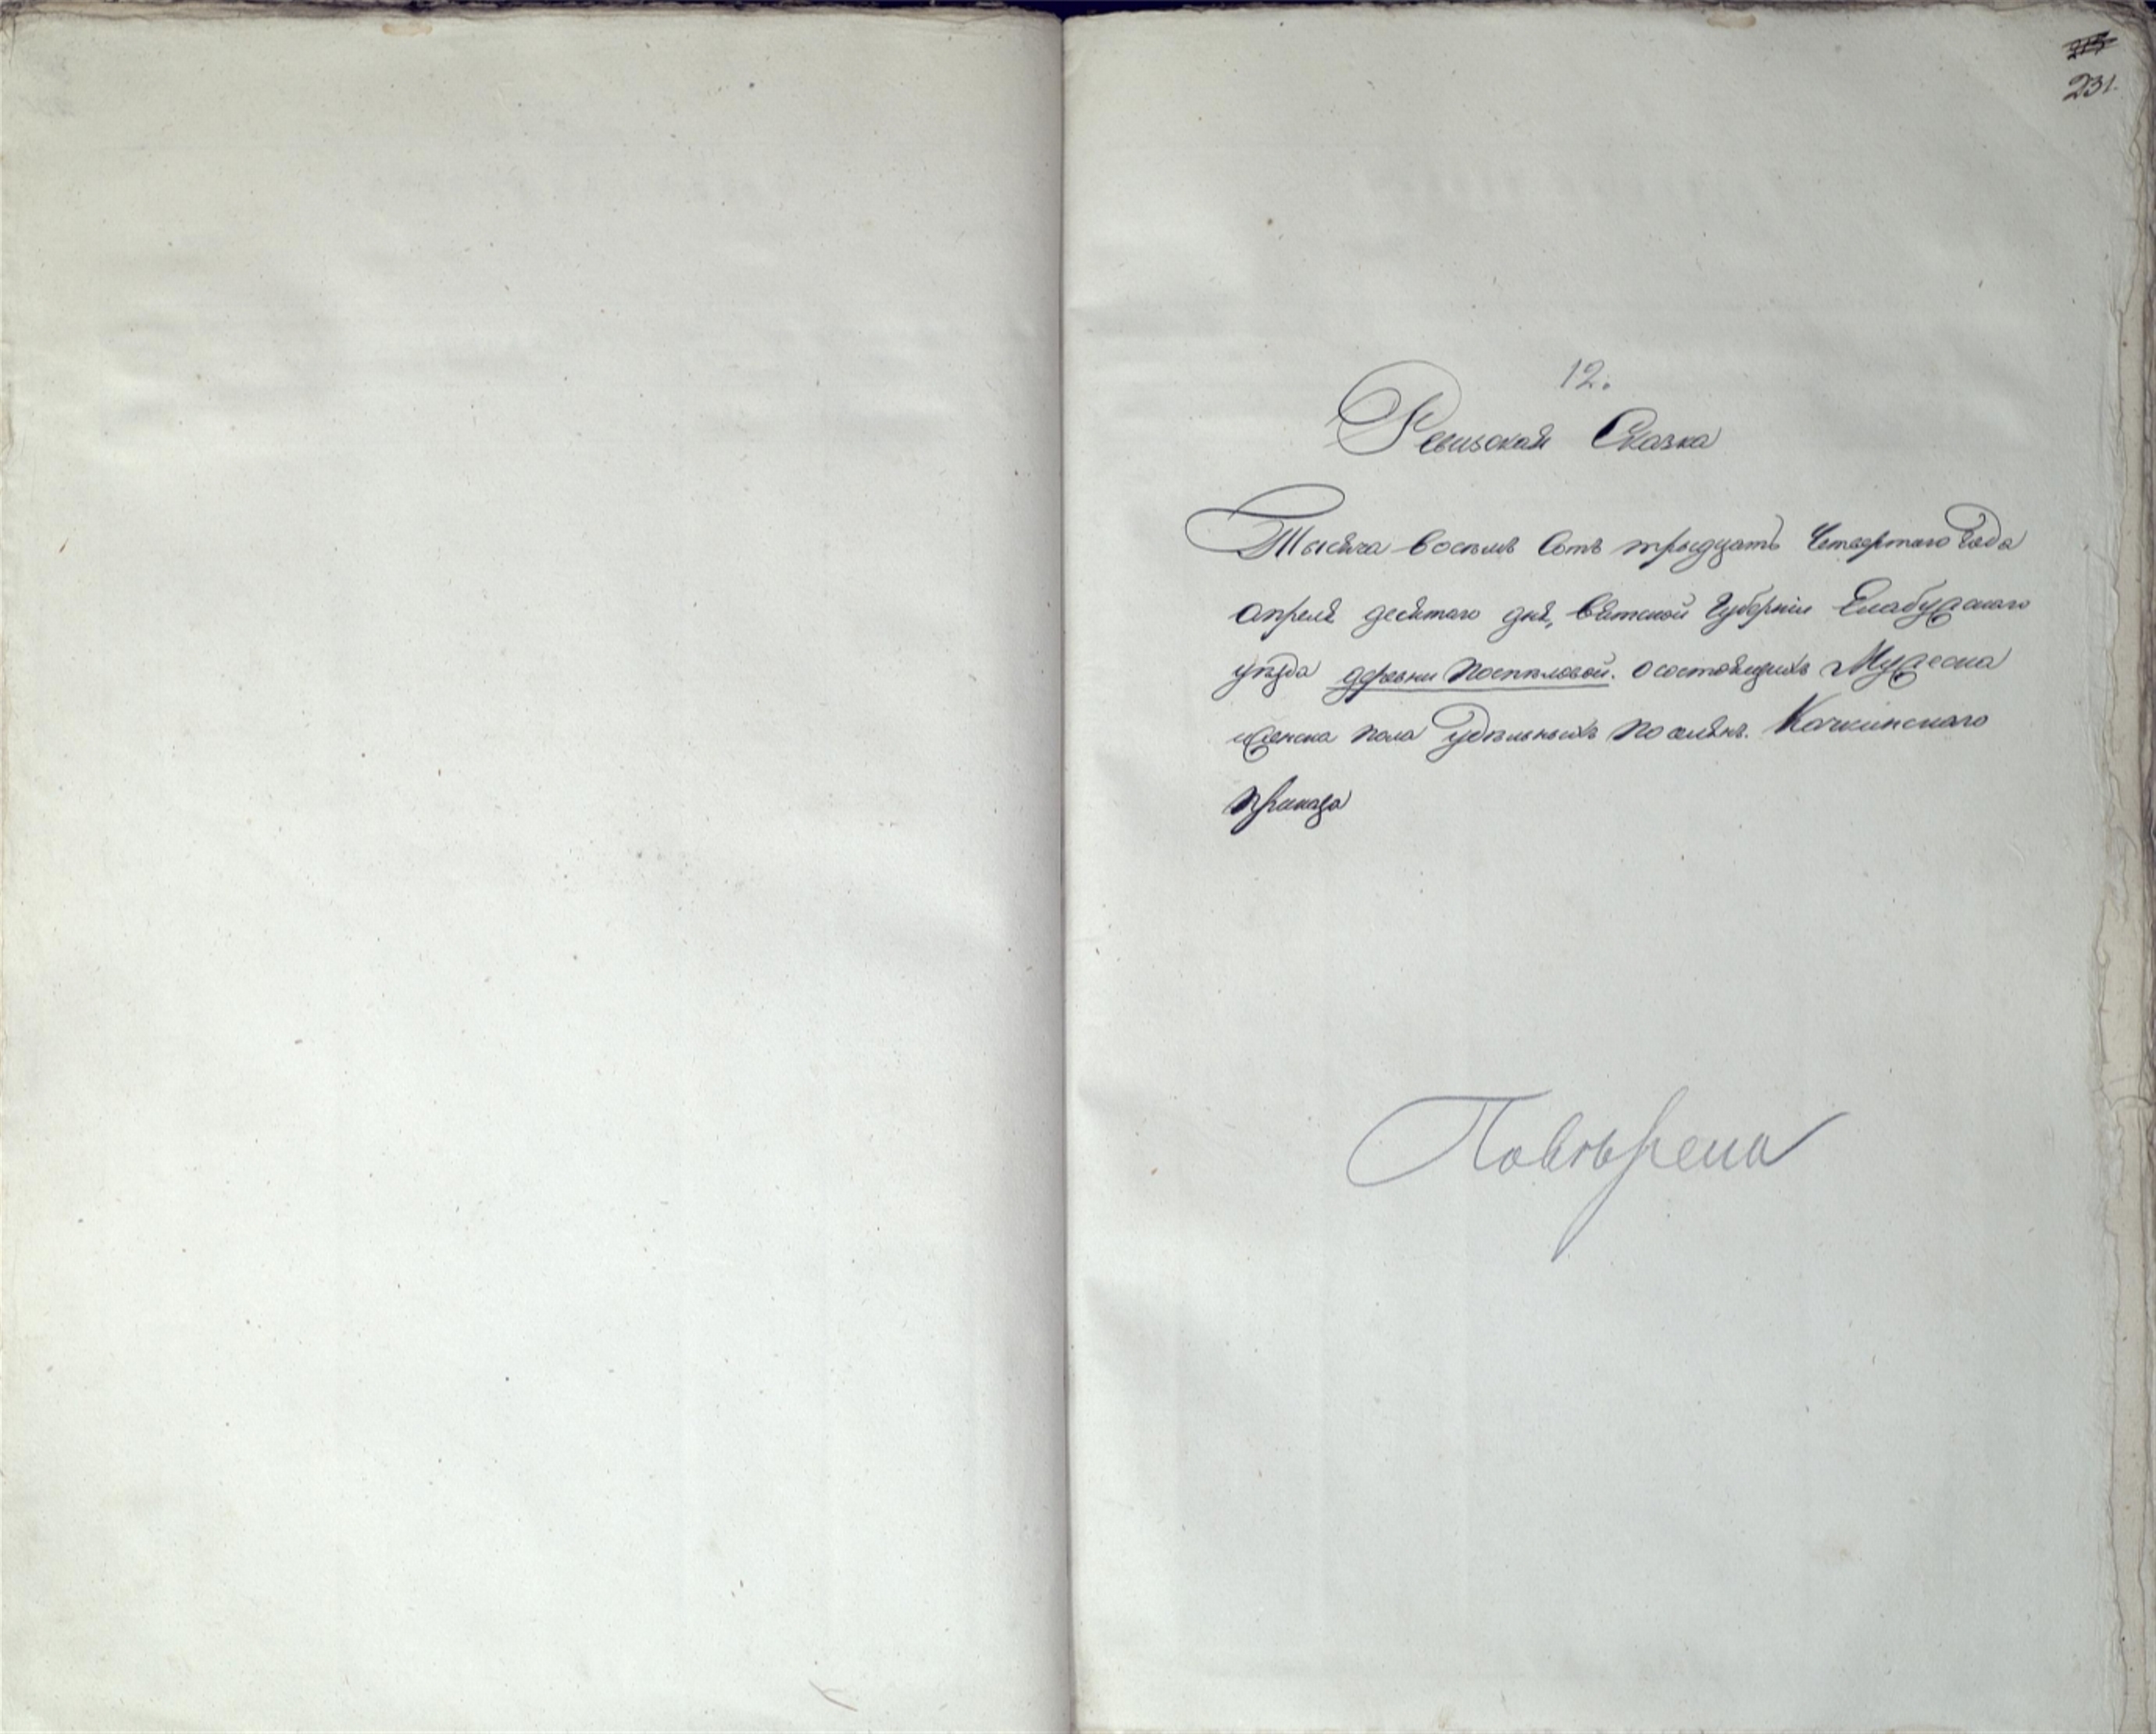 231.
12.
Ревиская Сказка
Тысяча восемь Сотъ тридцать Четвертаго Года
апреля десятаго дня, Вятской Губерніи Елабускаго
уѣзда деревни Поспѣловой. о состоящихъ Мужеска
и женска пола Удѣльныхъ поселянъ. Качкинскаго
приказа
Повѣрена